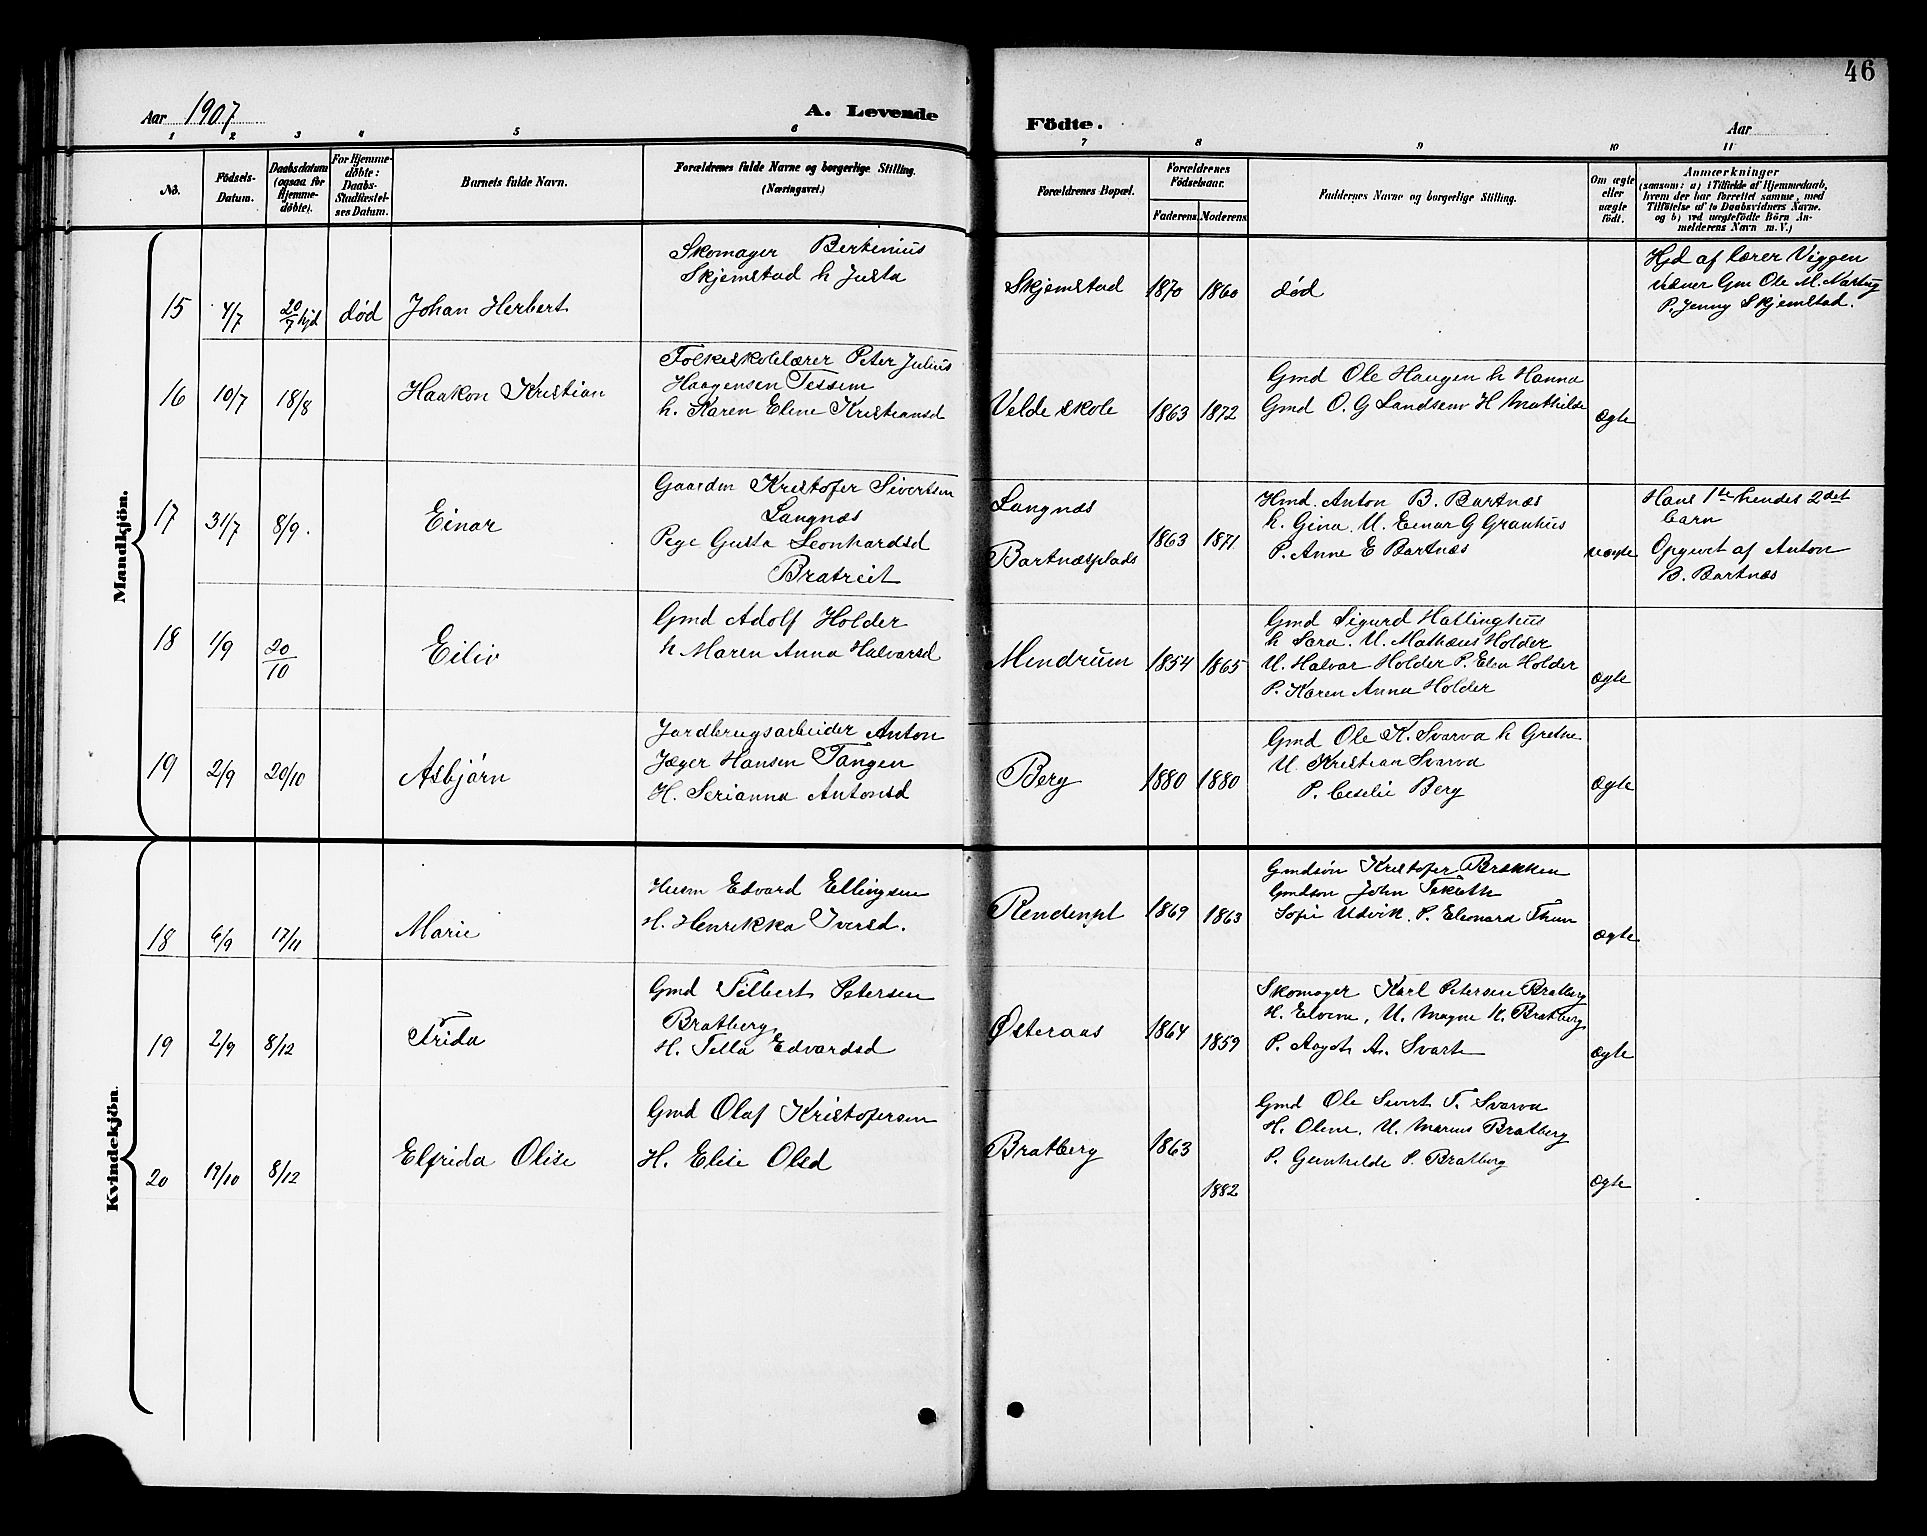 46
Aar 1907
A. Levende
Födte.
Aar
1 2 3 4 5 6 7 8 9 10 11
No.
Födsels-
Datum.
Daabsdatum
(ogsaa for
Hjemme-
døbte).
For Hjemme-
døbte:
Daabs-
Stadfæstel-
ses Datum.
Barnets fulde Navn.
Forældrenes fulde Navne og borgerlige Stilling.
(Næringsvei.)
Forældrenes Bopæl.
Forældrenes
Födselsaar.
Faderens Moderens
Faddernes Navne og borgerlige Stilling.
Om ægte
eller
uægte
födt.
Anmærkninger
(saasom: a) i Tilfælde af Hjemmedaab,
hvem der har forrettet samme, med
Tilföielse af to Daabsvidners Navne.
og b) ved uægtefödte Börn An-
melderens Navn m. V.)
Mandkjön.
15 4/7 20/7 hjd død Johan Herbert
Skomager Bertinius
Skjemstad h Justa
Skjemstad 1870 1860 død
Hjd af lærer Viggen
vidner Gm Ole M. Marlug
P. Jenny Skjemstad.
16 10/7 18/8 Haakon Kristian
Folkeskolelærer Peter Julius
Haagensen Tessem
h. Karen Eline Kristiansd
Velde skole 1863 1872
Gmd Ole Haugen h Hanna
Gmd O. G Landsem H Mathilde
ægte
17 31/7 8/9. Einar
Gaardm Kristofer Sivertsen
Langnæs
Pige Gusta Leonhardsd
Bratreit
Langnæs
Bartnæsplads
1863 1871
Hmd. Anton B. Bartnæs
h. Gina. U. Einar G Granhus
P. Anne E Bartnæs
uægte
Hans 1te hendes 2det
barn
Opgivet af Anton
B. Bartnæs
18 1/9 20/10 Eiliv
Gmd Adolf Holder
h Maren Anna Halvarsd
Mendrum 1854 1865
Gmd Sigurd Hallinghus
h Sara. U. Mathæus Holder
U. Halvar Holder P. Elen Holder
P. Karen Anna Holder
ægte
19 2/9 20/10 Asbjørn
Jordbrugsarbeider Anton
Jæger Hansen Tangen
H. Serianna Antonsd
Berg 1880 1880
Gmd Ole K. Svarva h Gretne
U. Kristian Svarva
P. Ceselie Berg
ægte
Kvindekjön.
18 6/9 17/11 Marie
Husm Edvard Ellingsen
H. Henrikka Iversd.
Rendenpl 1869 1863
Gmdsön Kristofer Brakken
Gmdsön John Tiketh
Sofie Udvik. P. Eleonard Thun
ægte
19 2/9 8/12 Frida
Gmd Tilbert Petersen
Bratberg
H. Tella Edvardsd
Østeraas 1864 1859
Skomager Karl Petersen Bratberg
H. Elvine, U. Magne K. Bratberg
P. Aagot A. Svarte
ægte
20 19/10 8/12 Elfrida Olise
Gmd Olaf Kristofersen
H. Elise Olsd
Bratberg 1863 1882
Gmd Ole Sivert T. Svarva
H. Oline. U. Marius Bratberg
P. Gunhilde P. Bratberg
ægte